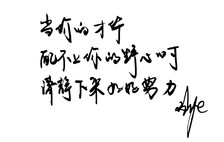 当你的才华
配不上你的野心时
请静下来好好努力